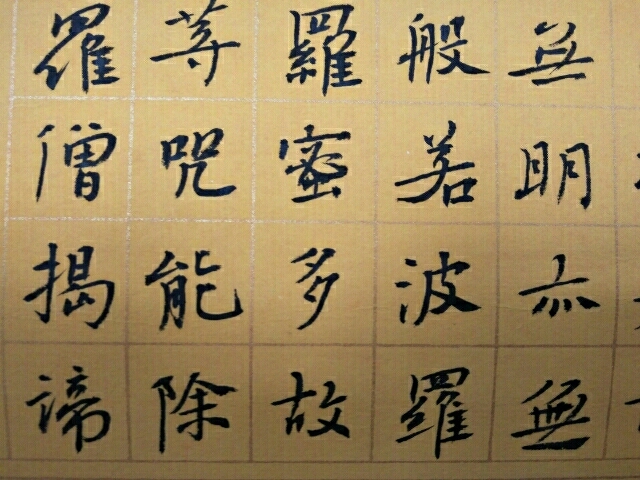 無明亦無
般若波羅
羅蜜多故
等咒能除
羅僧揭諦